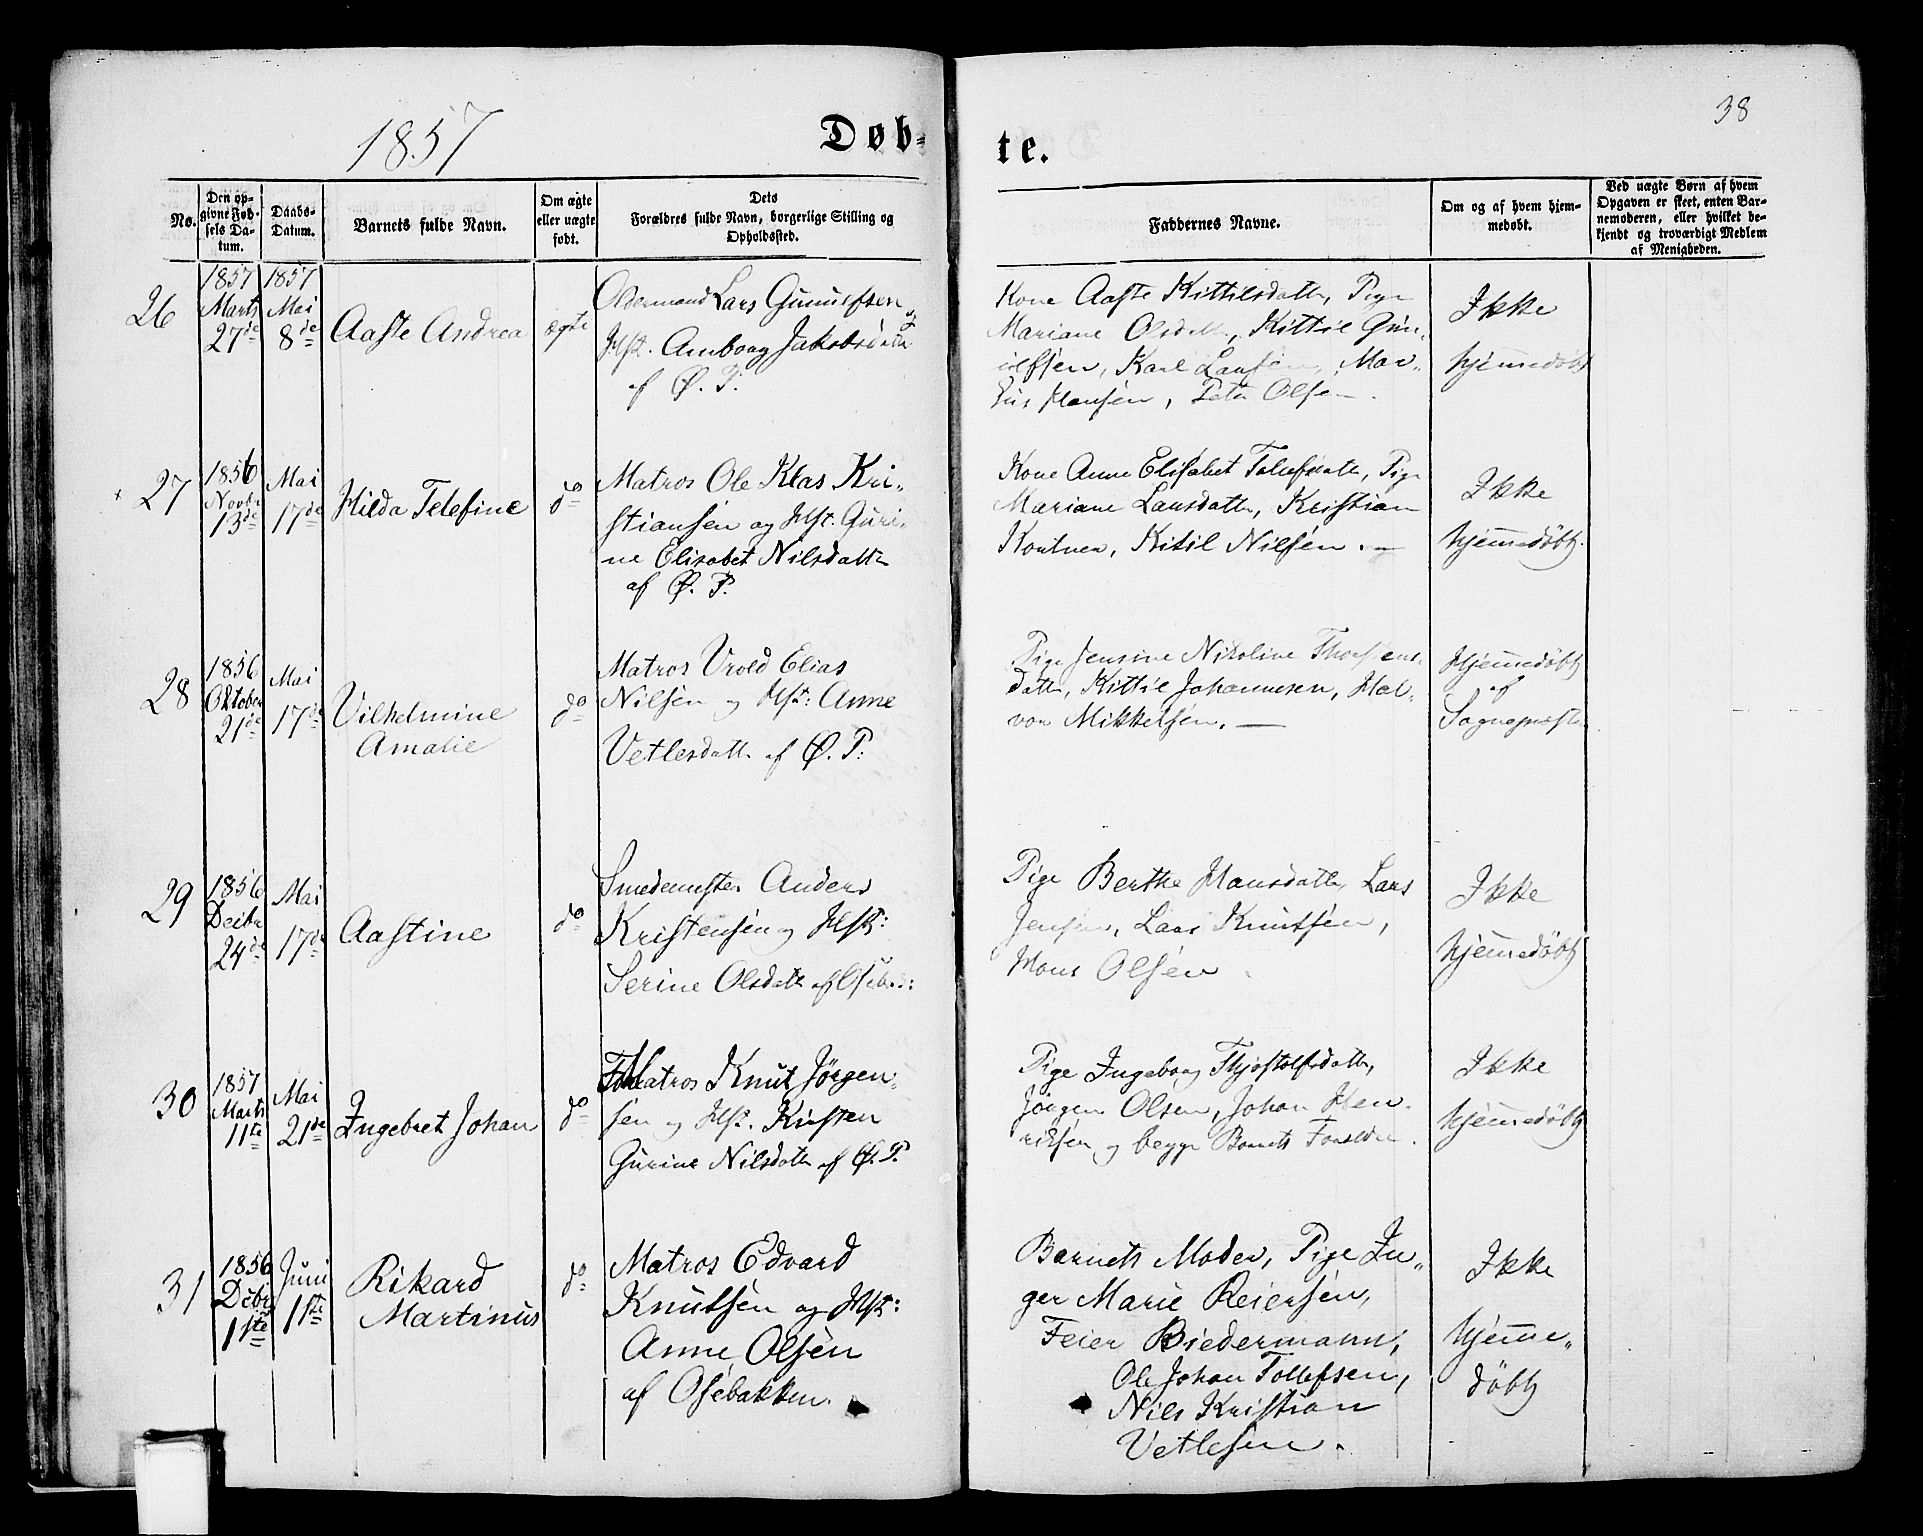 1857
Døb-
te.
38
No.
Den op-
givne Fød-
sels Da-
tum.
Daabs-
Datum.
Barnets fulde Navn.
Om ægte
eller uægte
født.
Dets
Forældres fulde Navn, borgerlige Stilling og
Opholdssted.
Faddernes Navne.
Om og af hvem hjem-
medøbt.
Ved uægte Børn af hvem
Opgaven er skeet, enten Bar-
nemoderen, eller hvilket be-
kjendt og troværdigt Medlem
af Menigheden.
26
1857
Marts
27de
1857
Mai
8de
Aaste Andrea
ægte
Oldermand Lars Gunulfsen
og
Hst. Amborg Jakobsdatt
af Ø. P.
Kone Aaste Kittilsdatt, Pige
Mariane Olsdatt, Kittil Gun-
ulfsen, Karl Larsen, Mar-
Hansen, Peter Olsen.
Ikke
hjemmedøbt
27
1856
Novbr
13de
Mai
17de
Hilda Telefine
do
Matros Ole Klas Kri-
stiansen og Hst. Guri-
ne Elisabet Nilsdatt
af Ø. P.
Kone Anne Elisabet Tolefsdatt, Pige
Mariane Larsdatt, Kristian
Kortner, Kitil Nilsen.
Ikke
hjemmedøbt.
28
1856
Oktober
21de
Mai
17de
Vilhelmine
Amalie
do
Matros Vrold Elias
Nilsen og Hst: Anne
Vetlesdatt af Ø. P.
Pige Jensine Nikoline Thorsens-
datt, Kittil Johannesen, Hal-
vor Mikkelsen. —
Hjemmedøbt
af
Sognepresten
29
1856
Decbr
24de
Mai
17de
Aastine
do
Smedemester Anders
Kristensen og Hst:
Serine Olsdatt af Osebak:
Pige Berthe Hansdatt, Lars
Jensen, Lars Knutsen,
Hans Olsen
Ikke
hjemmedøbt
30
1857
Marts
11te
Mai
21de
Ingebret Johan
do
Matros Knut Jørgen-
sen og Hst. Kirsten
Gurine Nilsdatt af Ø. P.
Pige Ingeborg Thjostolfsdatt,
Jörgen Olsen, Johan Hen-
riksen og begge Barnets Forældre.
Ikke
hjemmedøbt
31
1856
Decbr
1ste
Juni
1ste
Rikard
Martinus
do
Matros Edvard
Knutsen og Hst:
Anne Olsen
af Osebakken.
Barnets Moder, Pige In-
ger Marie Reiersen,
Feier Biedermann,
Ole Johan Tollefsen,
Nils Kristian
Vetlesen.
Ikke
hjemme-
døbt